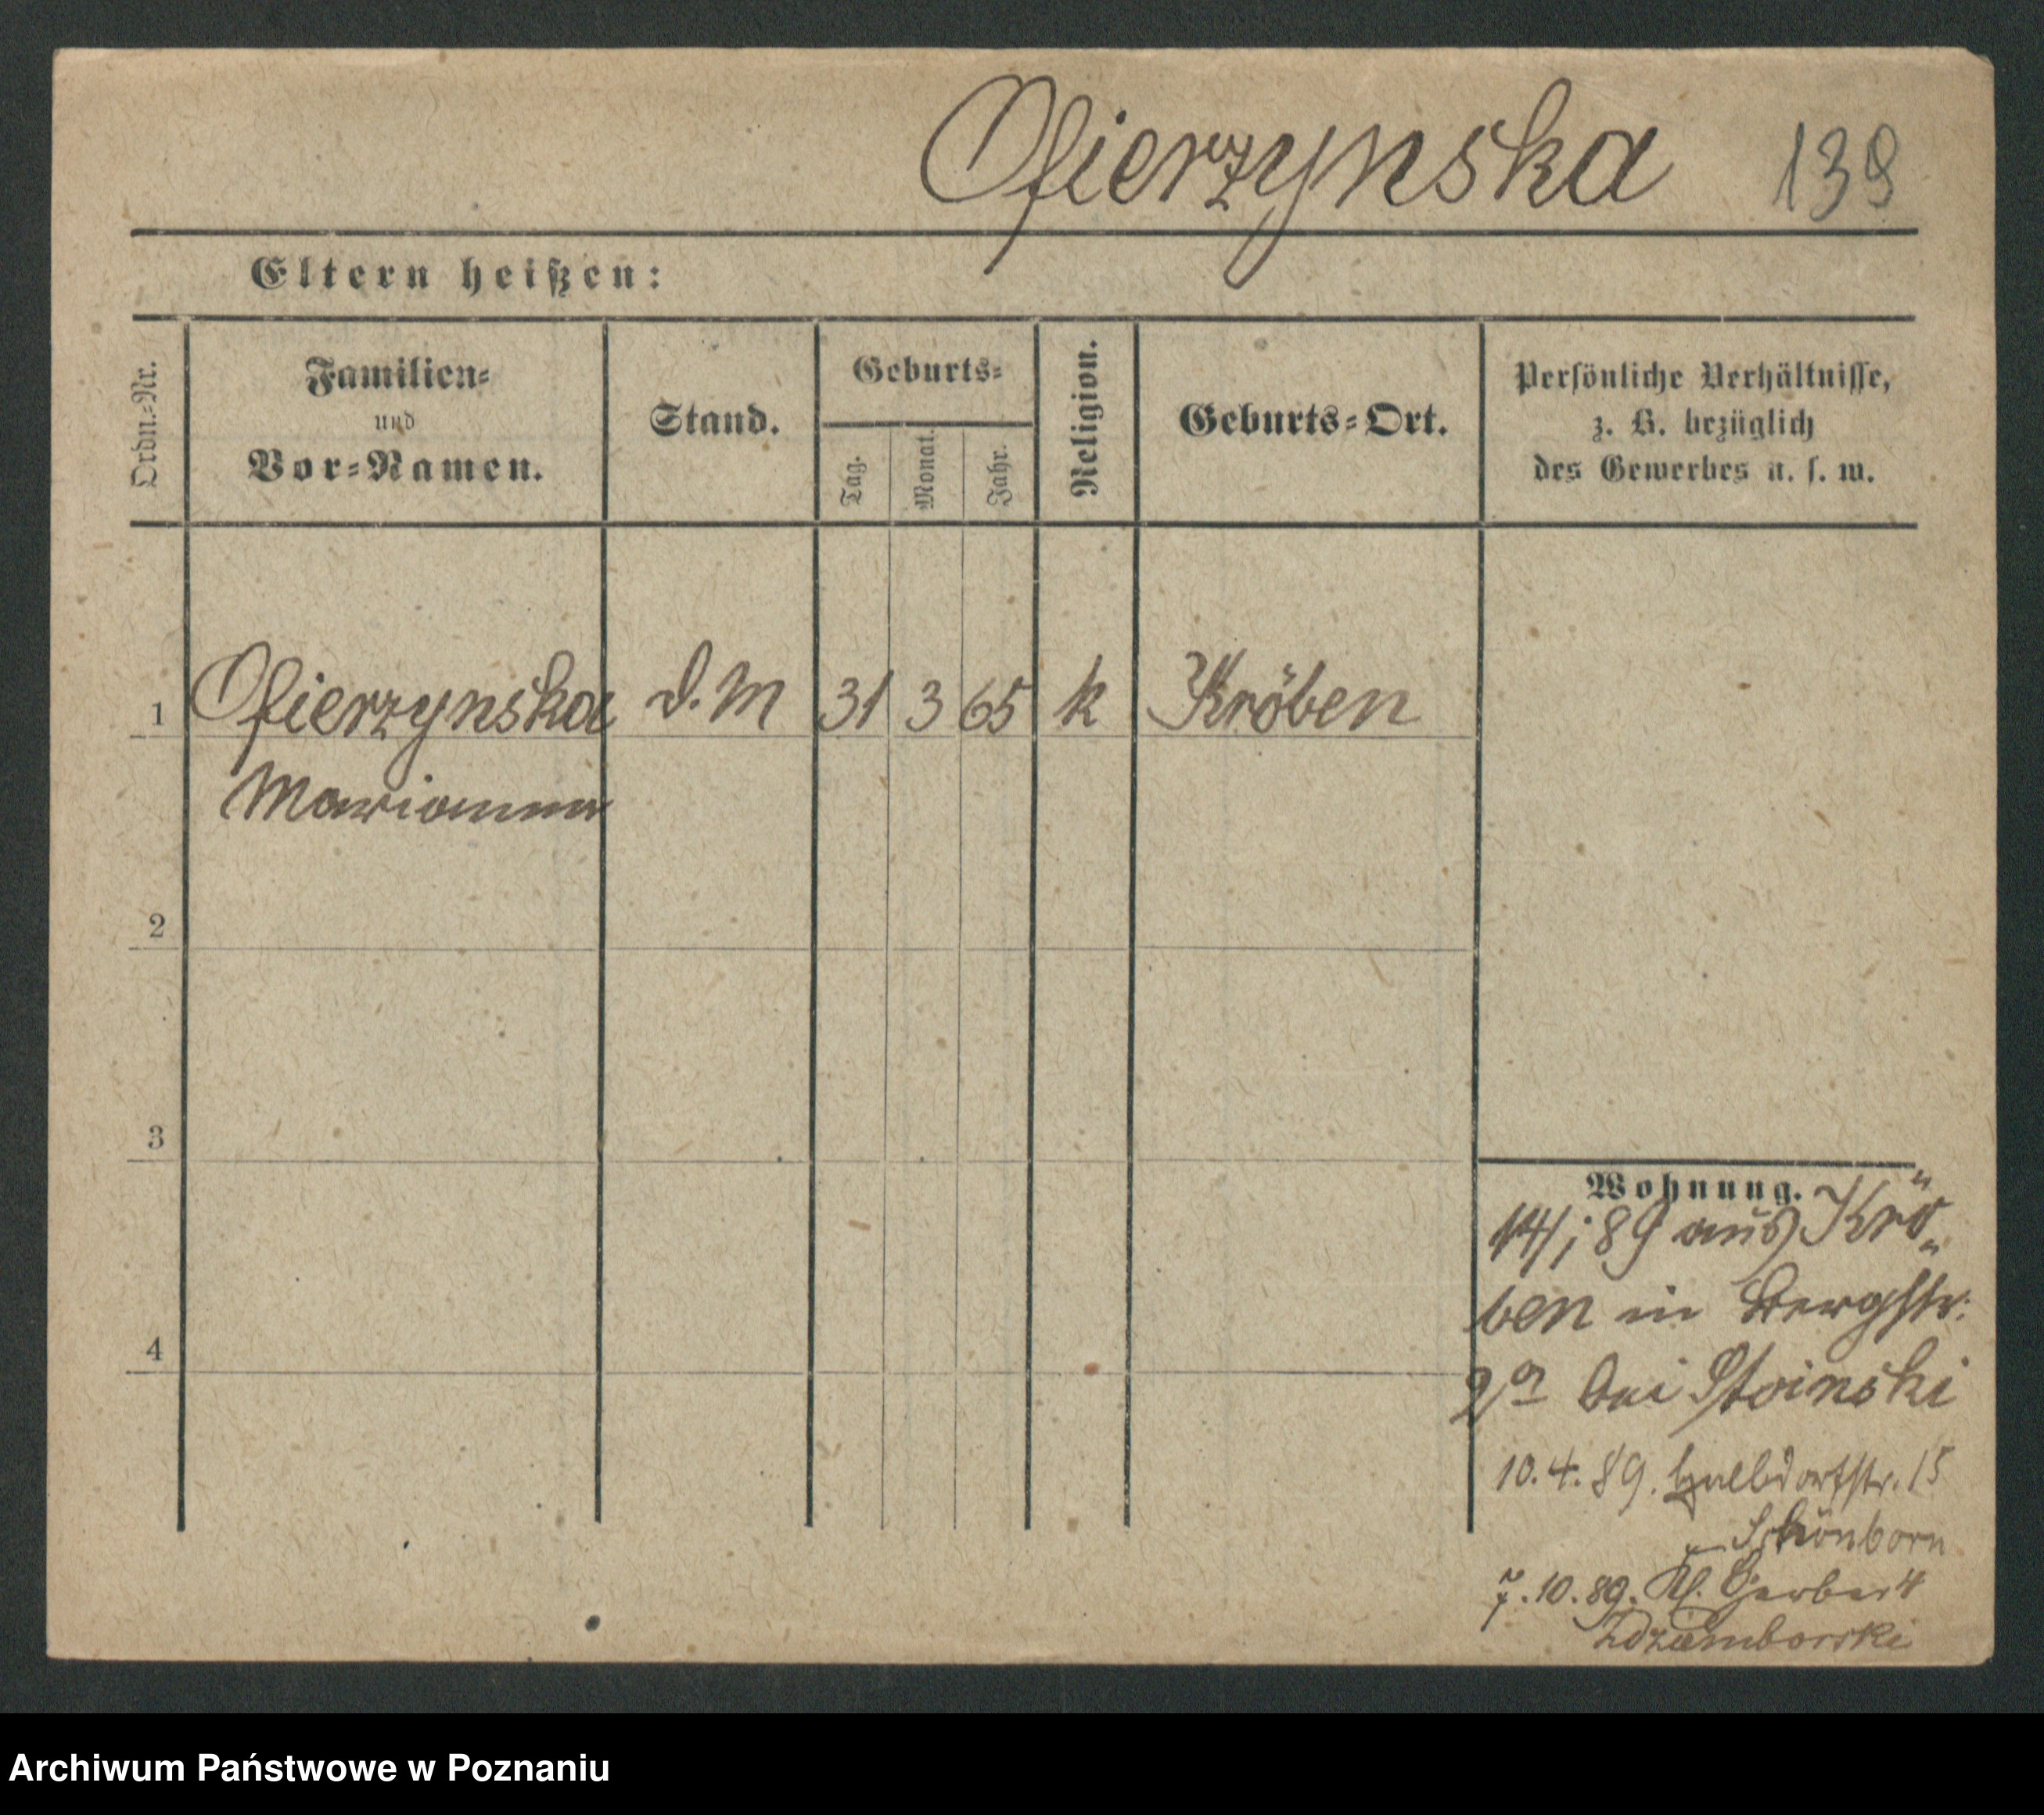 Ofierzynska 139
Eltern heißen:
Ordn.-Nr.
Familien-
und
Vor-Namen.
Stand.
Geburts-
Tag.
Monat.
Jahr.
Religion.
Geburts-Ort.
Persönliche Verhältnisse,
z. B. bezüglich
des Gewerbes u. s. w.
1 Ofierzynska D. M 31 3 65 k Kröben
Marianna
2
3
4
Wohnung.
89 aus Krö„
ben in Bergstr:
bei Stoinski
10.4.89. Halbdorfstr. 15
Schönborn
7.10.89. Kl. Gerber 4
Archiwum Państwowe w Poznaniu